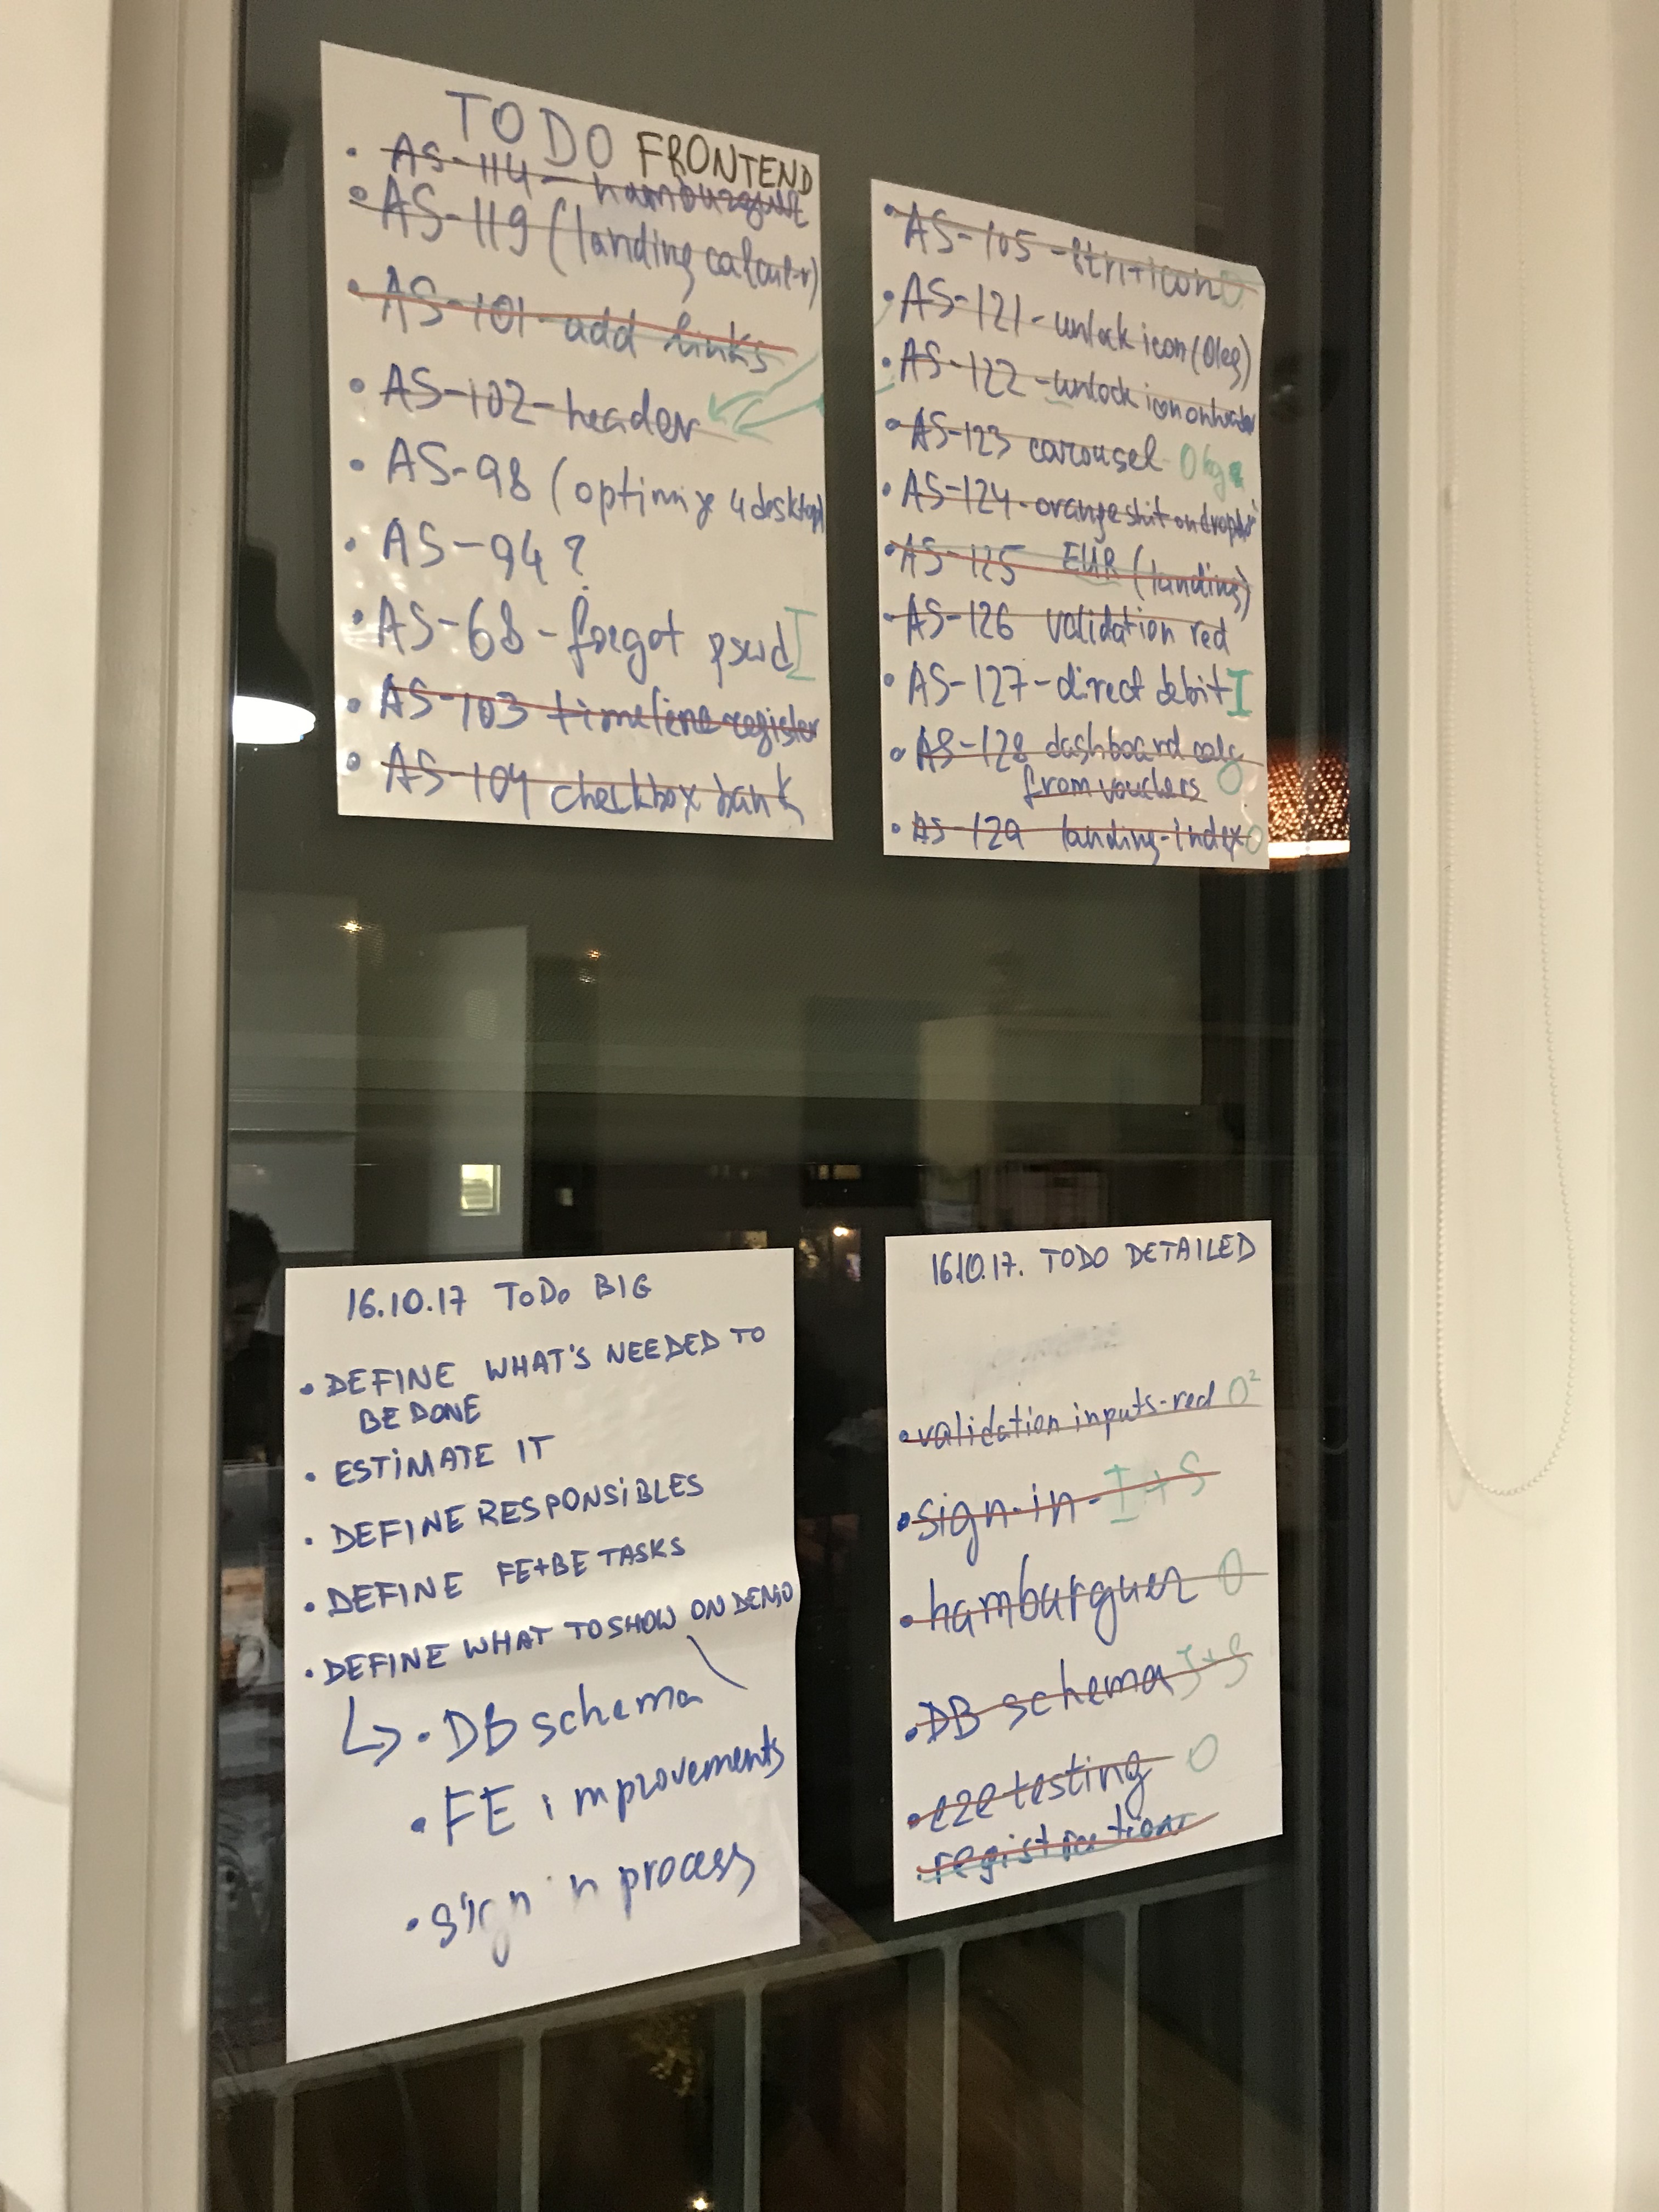 TO DO FRONTEND
• AS-114 - hamburguer
• AS-119 (landing calculator)
• AS-101 - add links
• AS-102 - header
• AS-98 (optimize 4 desktop)
• AS-94 ?
• AS-68 - forgot pswd I
• AS-103 timeline register
• AS-104 checkbox bank
• AS-105 -
• AS-121 - unlock icon (Oleg)
• AS-122 - unlock icon on header
• AS-123 carousel Oleg
• AS-124 - orange shit on
• AS-125 EUR (landing)
• AS-126 validation red
• AS-127 - direct debit I
• AS-128 dashboard calc
from vouchers O
• AS-129 landing-index O
16.10.17 ToDo BIG
• DEFINE WHAT'S NEEDED TO
BE DONE
• ESTIMATE IT
• DEFINE RESPONSIBLES
• DEFINE FE+BE TASKS
• DEFINE WHAT TO SHOW ON DEMO
↳ • DB schema
• FE improvements
• sign in process
16.10.17. TODO DETAILED
• validation inputs-red O²
• sign-in - I + S
• hamburguer O
• DB schema I+S
• e2e testing O
• registration